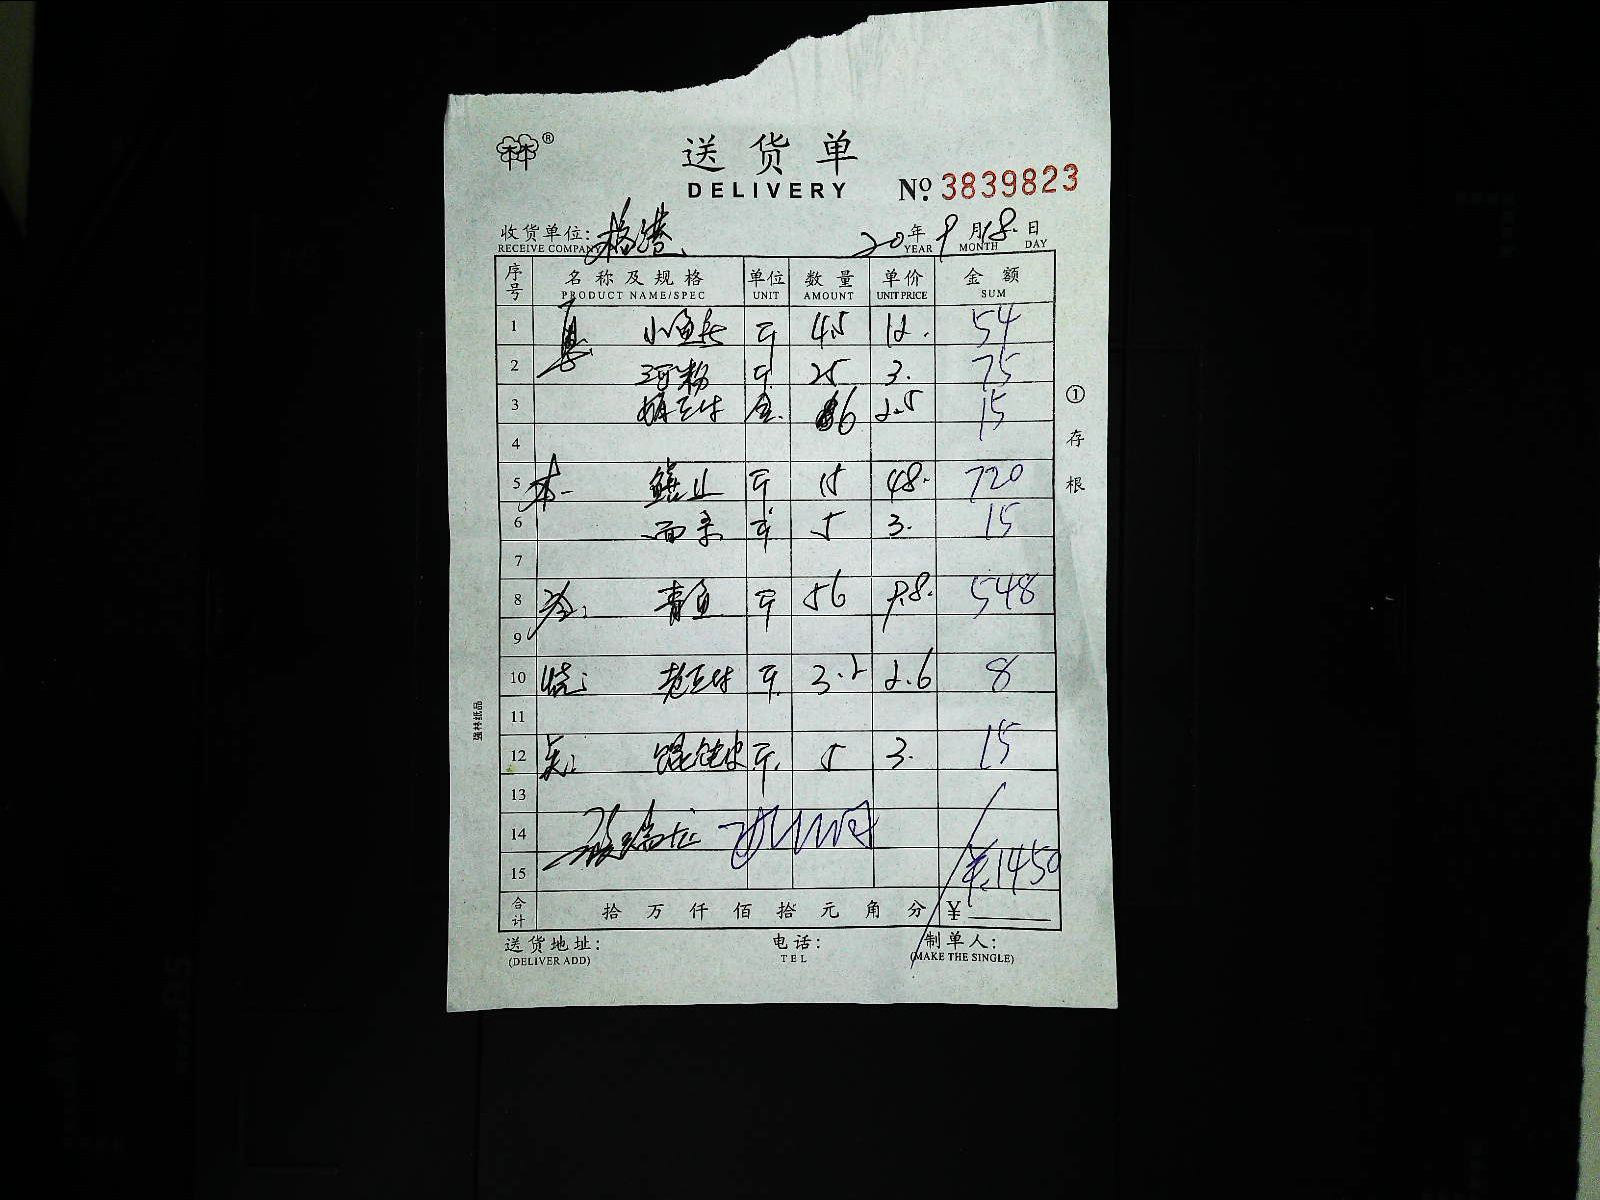 林®
送货单
DELIVERY
№ 3839823
收货单位: 杨港
RECEIVE COMPANY
20年9月18日
YEAR MONTH DAY
序号 名称及规格 单位 数量 单价 金额
PRODUCT NAME/SPEC UNIT AMOUNT UNIT PRICE SUM
1 小鱼 斤 4.5 12. 54
2 河粉 斤 25 3. 75
3 6 2.5 15
4
5 本 斤 15 48. 720
6 斤 5 3. 15
7
8 青鱼 斤 56 9.8. 548
9
10 烧: 老豆 斤 3.2 2.6 8
11
12 关: 馄饨皮 斤 5 3. 15
13
14
15 ¥1450
合计 拾 万 仟 佰 拾 元 角 分 ¥
送货地址: 电话: 制单人:
(DELIVER ADD) TEL (MAKE THE SINGLE)
①存根
强林纸品